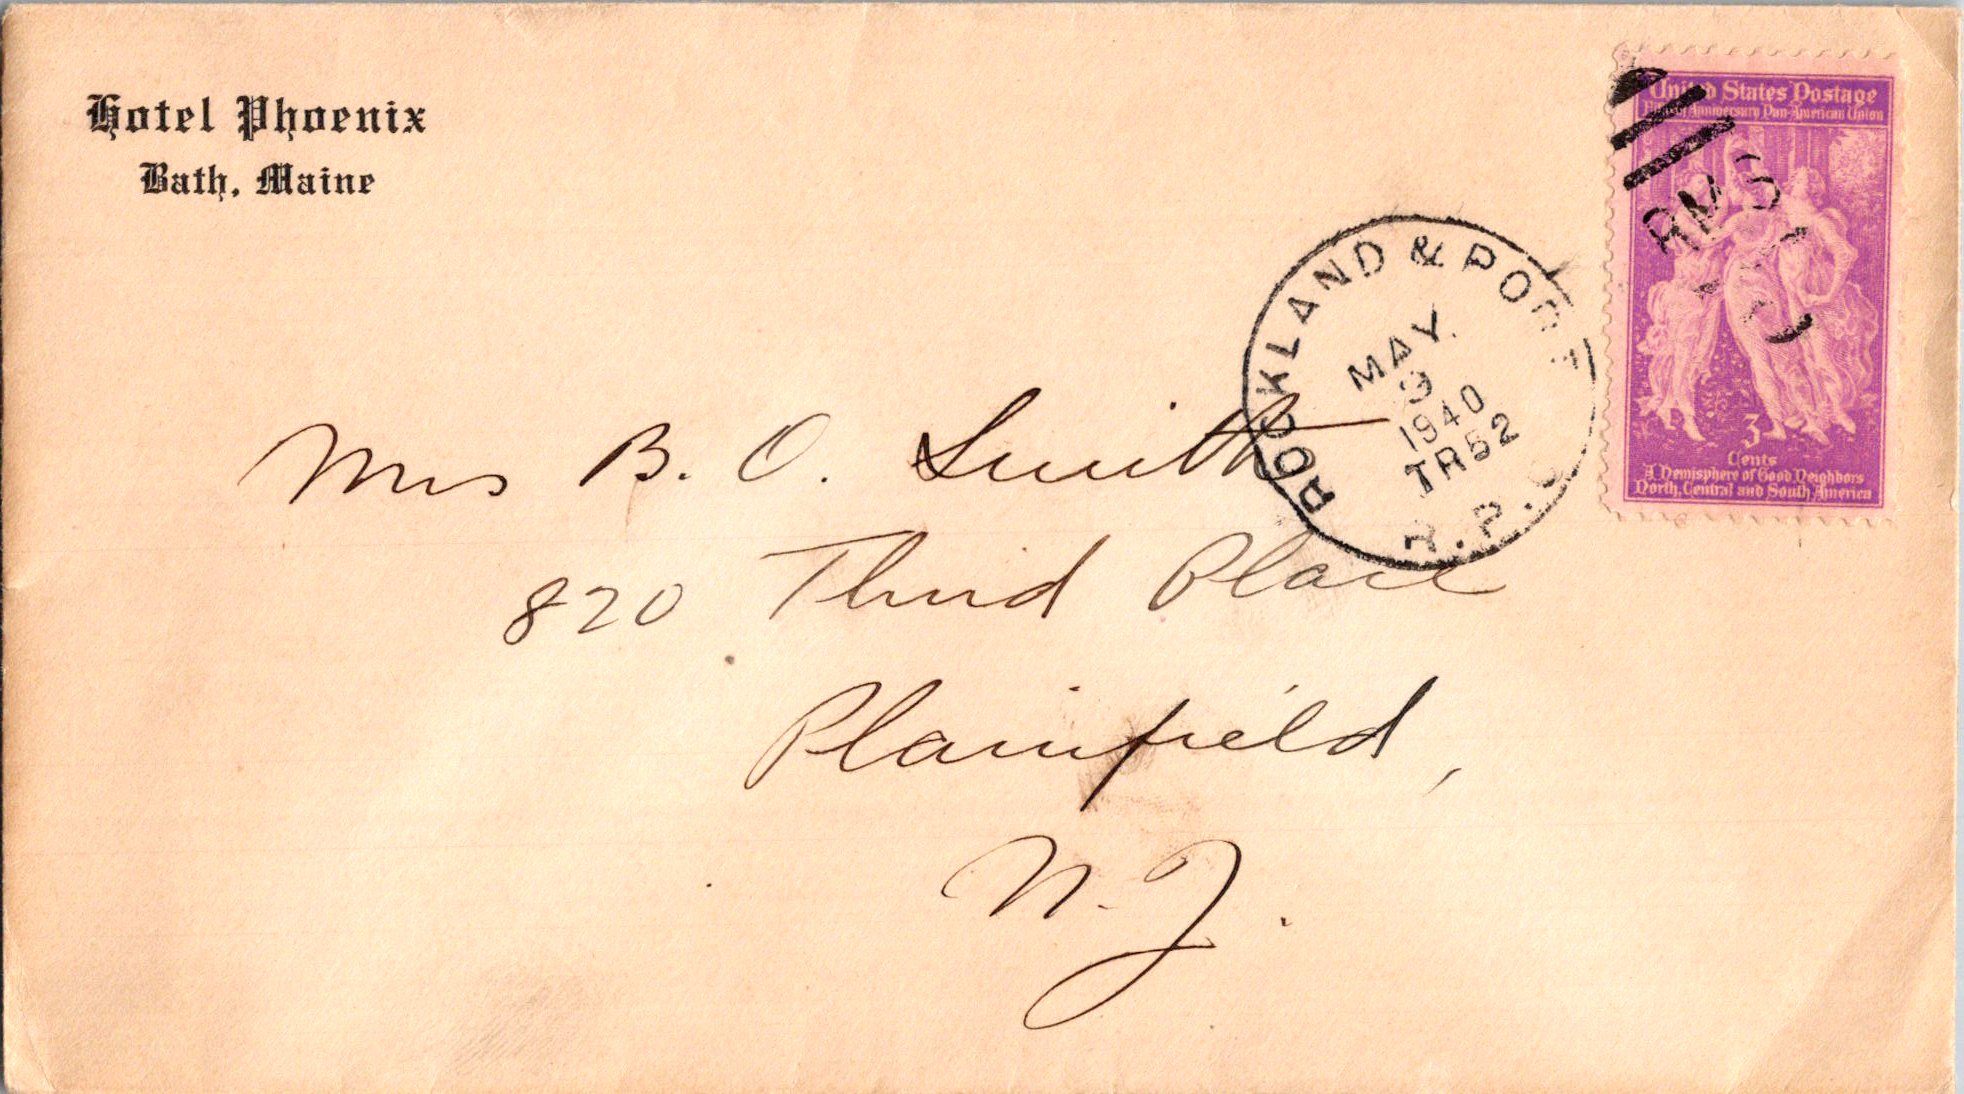 Hotel Phoenix
Bath, Maine
United States Postage
Anniversary Pan-American Union
RMS
3
Cents
A Hemisphere of Good Neighbors
North, Central and South America
ROCKLAND & PORT
MAY.
9
1940
TR52
R.P.O
Mrs B. O. Smith
820 Third Place
Plainfield,
N. J.